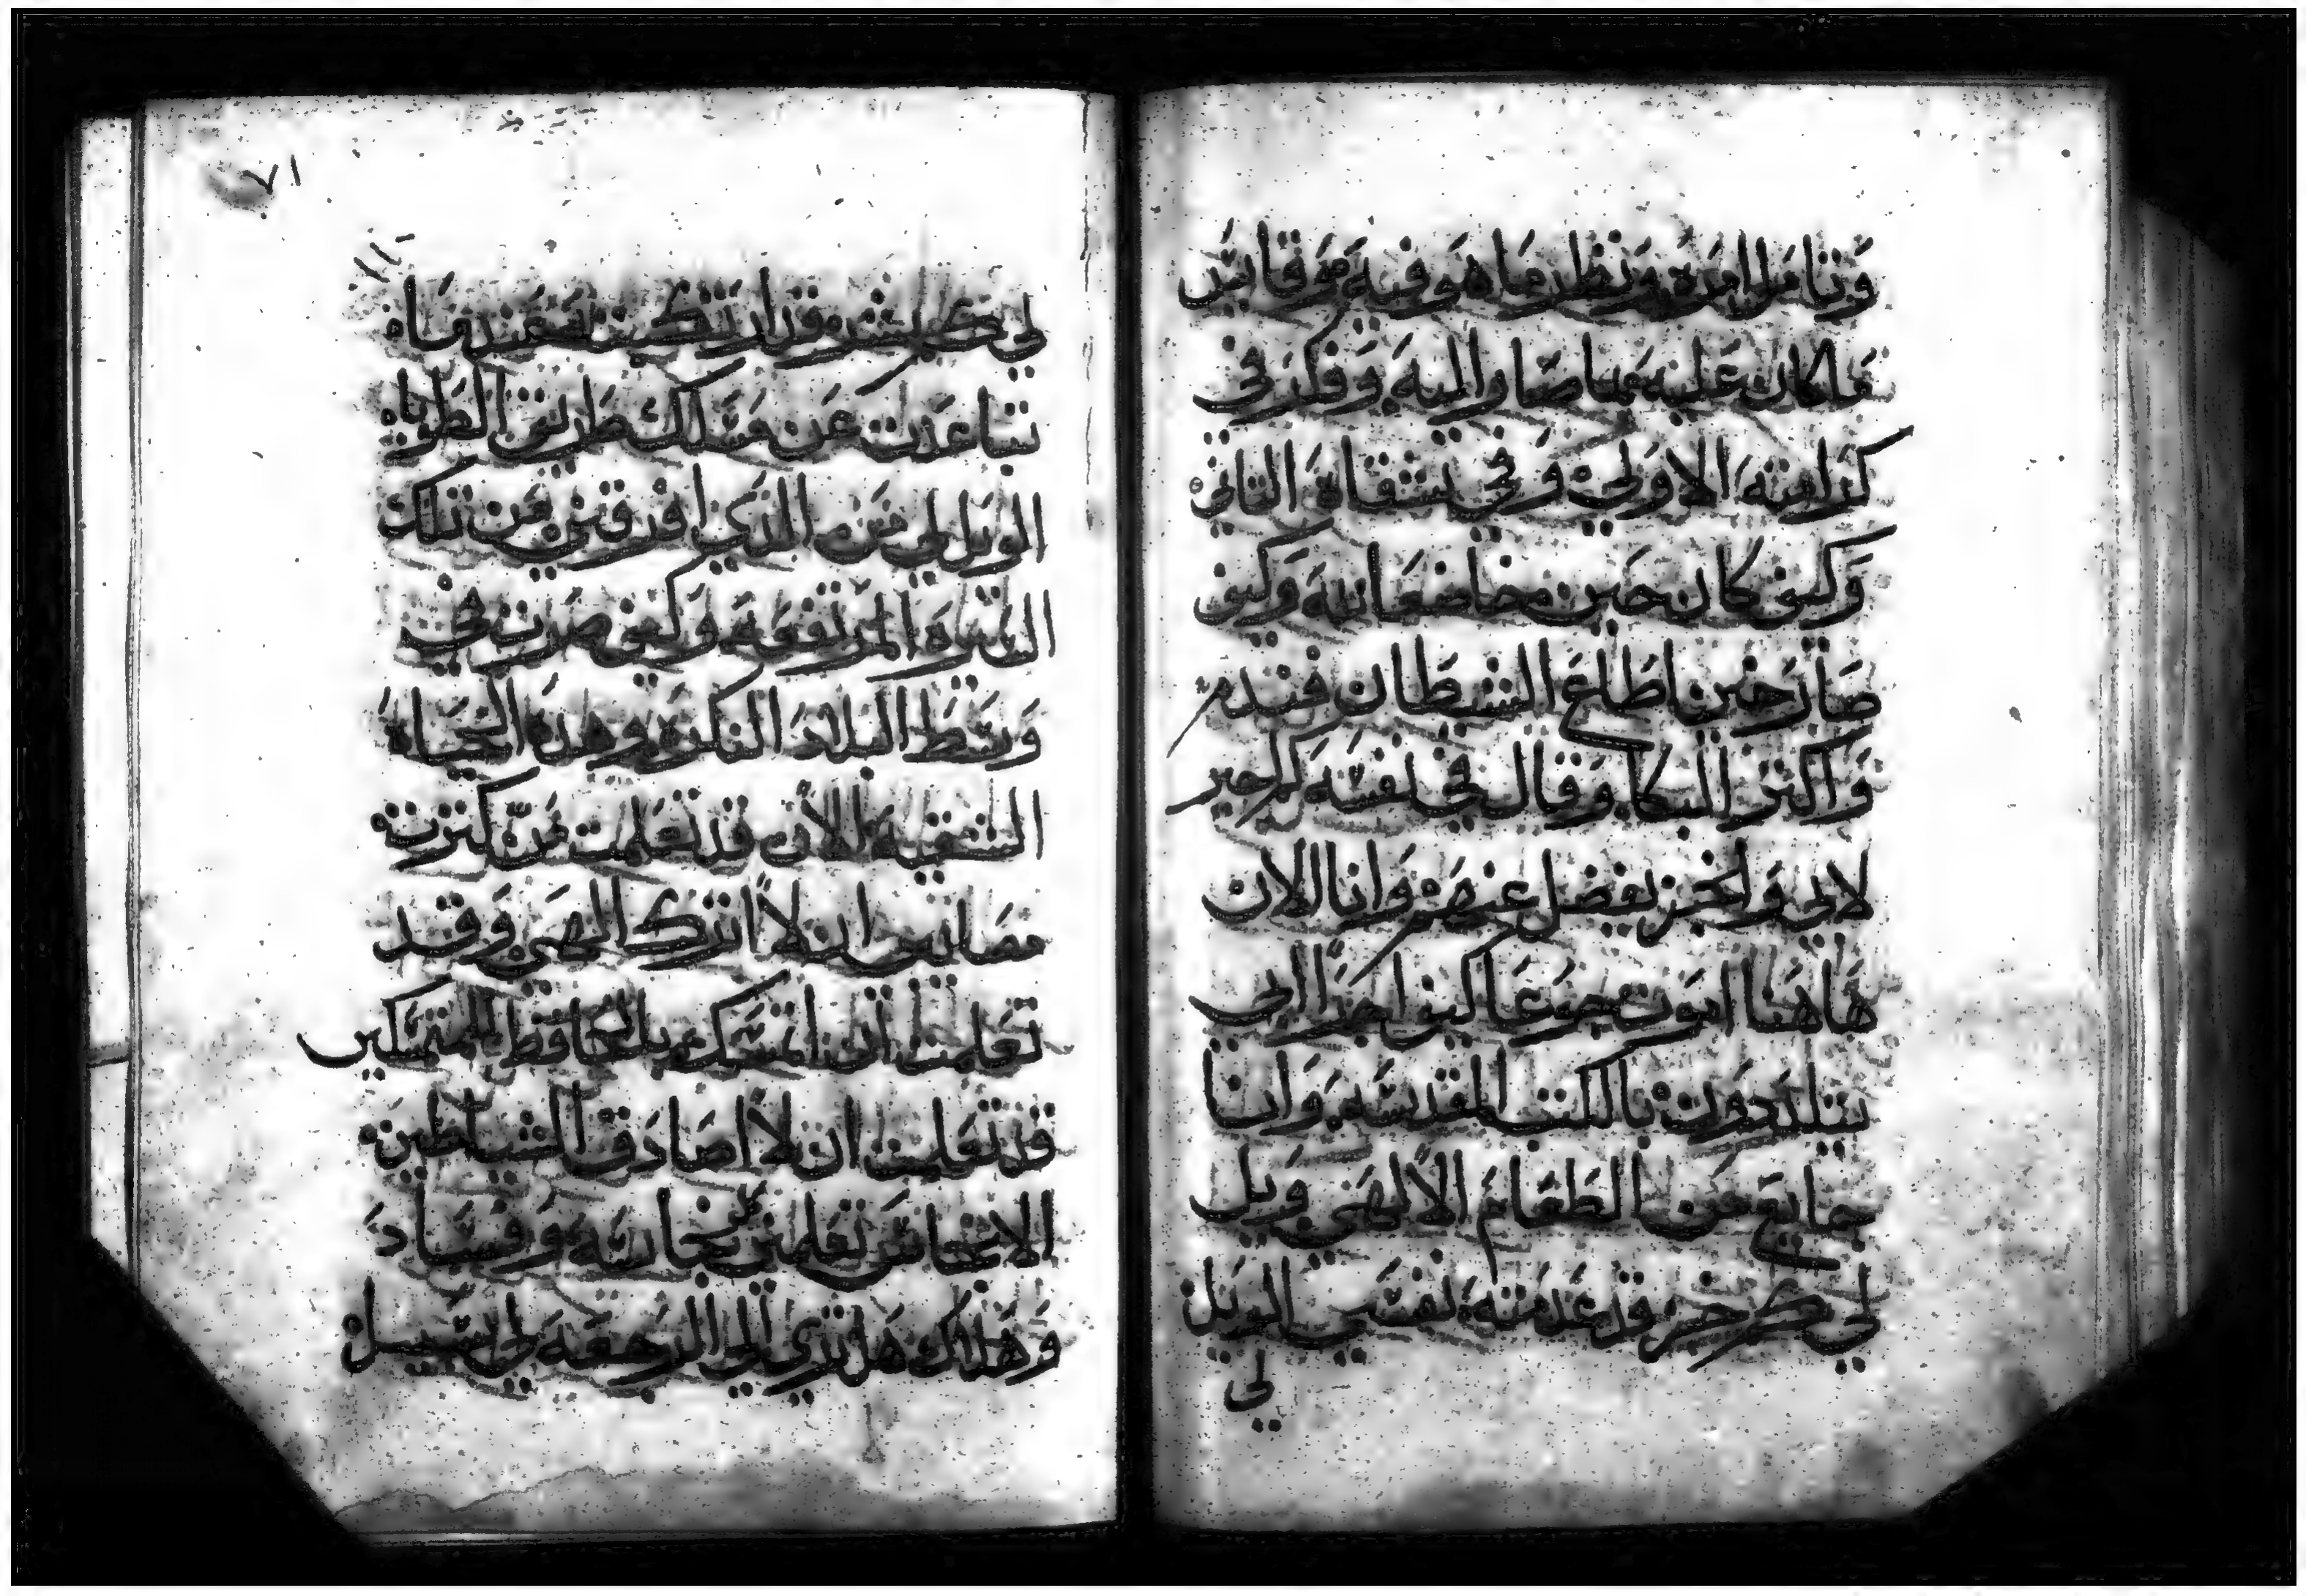 وتامل امره ونظر ماهو فيه موقايس
ما كان عليه مما صار اليه وفكر في
كرامته الاولي وفي شقاه الثاني
وكيف كان حين مخاضعا لله وكيف
صار حين اطاع الشيطان فندم
واكثر البكا وقال في نفسه كم اجير
لابي والخبز يفضل عنهم وانا الان
هاهنا اموت جوعا كيف اجرا الي
يتلددون بالكتب المقدسه وانا
جايع من الطعام الالهي ويل
لي كم خير قد عدمته نفسي الويل
لي
٧١
لي كم شر قد ادركني
تباعدت عن مسلك طريق الطوباه
الويل لي من الذي افرقني من تلك
السيره المرتفعه وكيف صرت في
وسط البلاد النكره وهذه الحياه
الشقيه الان قد تعلمت من كثرت
مصايبي ان لا اترك الهي وقد
تعلمت ان اتمسك بالحافظ للمتمسكين
قد تعلمت ان لا اصادق الشياطين
الانجاس تعلمني نجاسه وفساد
وهلاك هل تري الي الرجعه لي سبيل